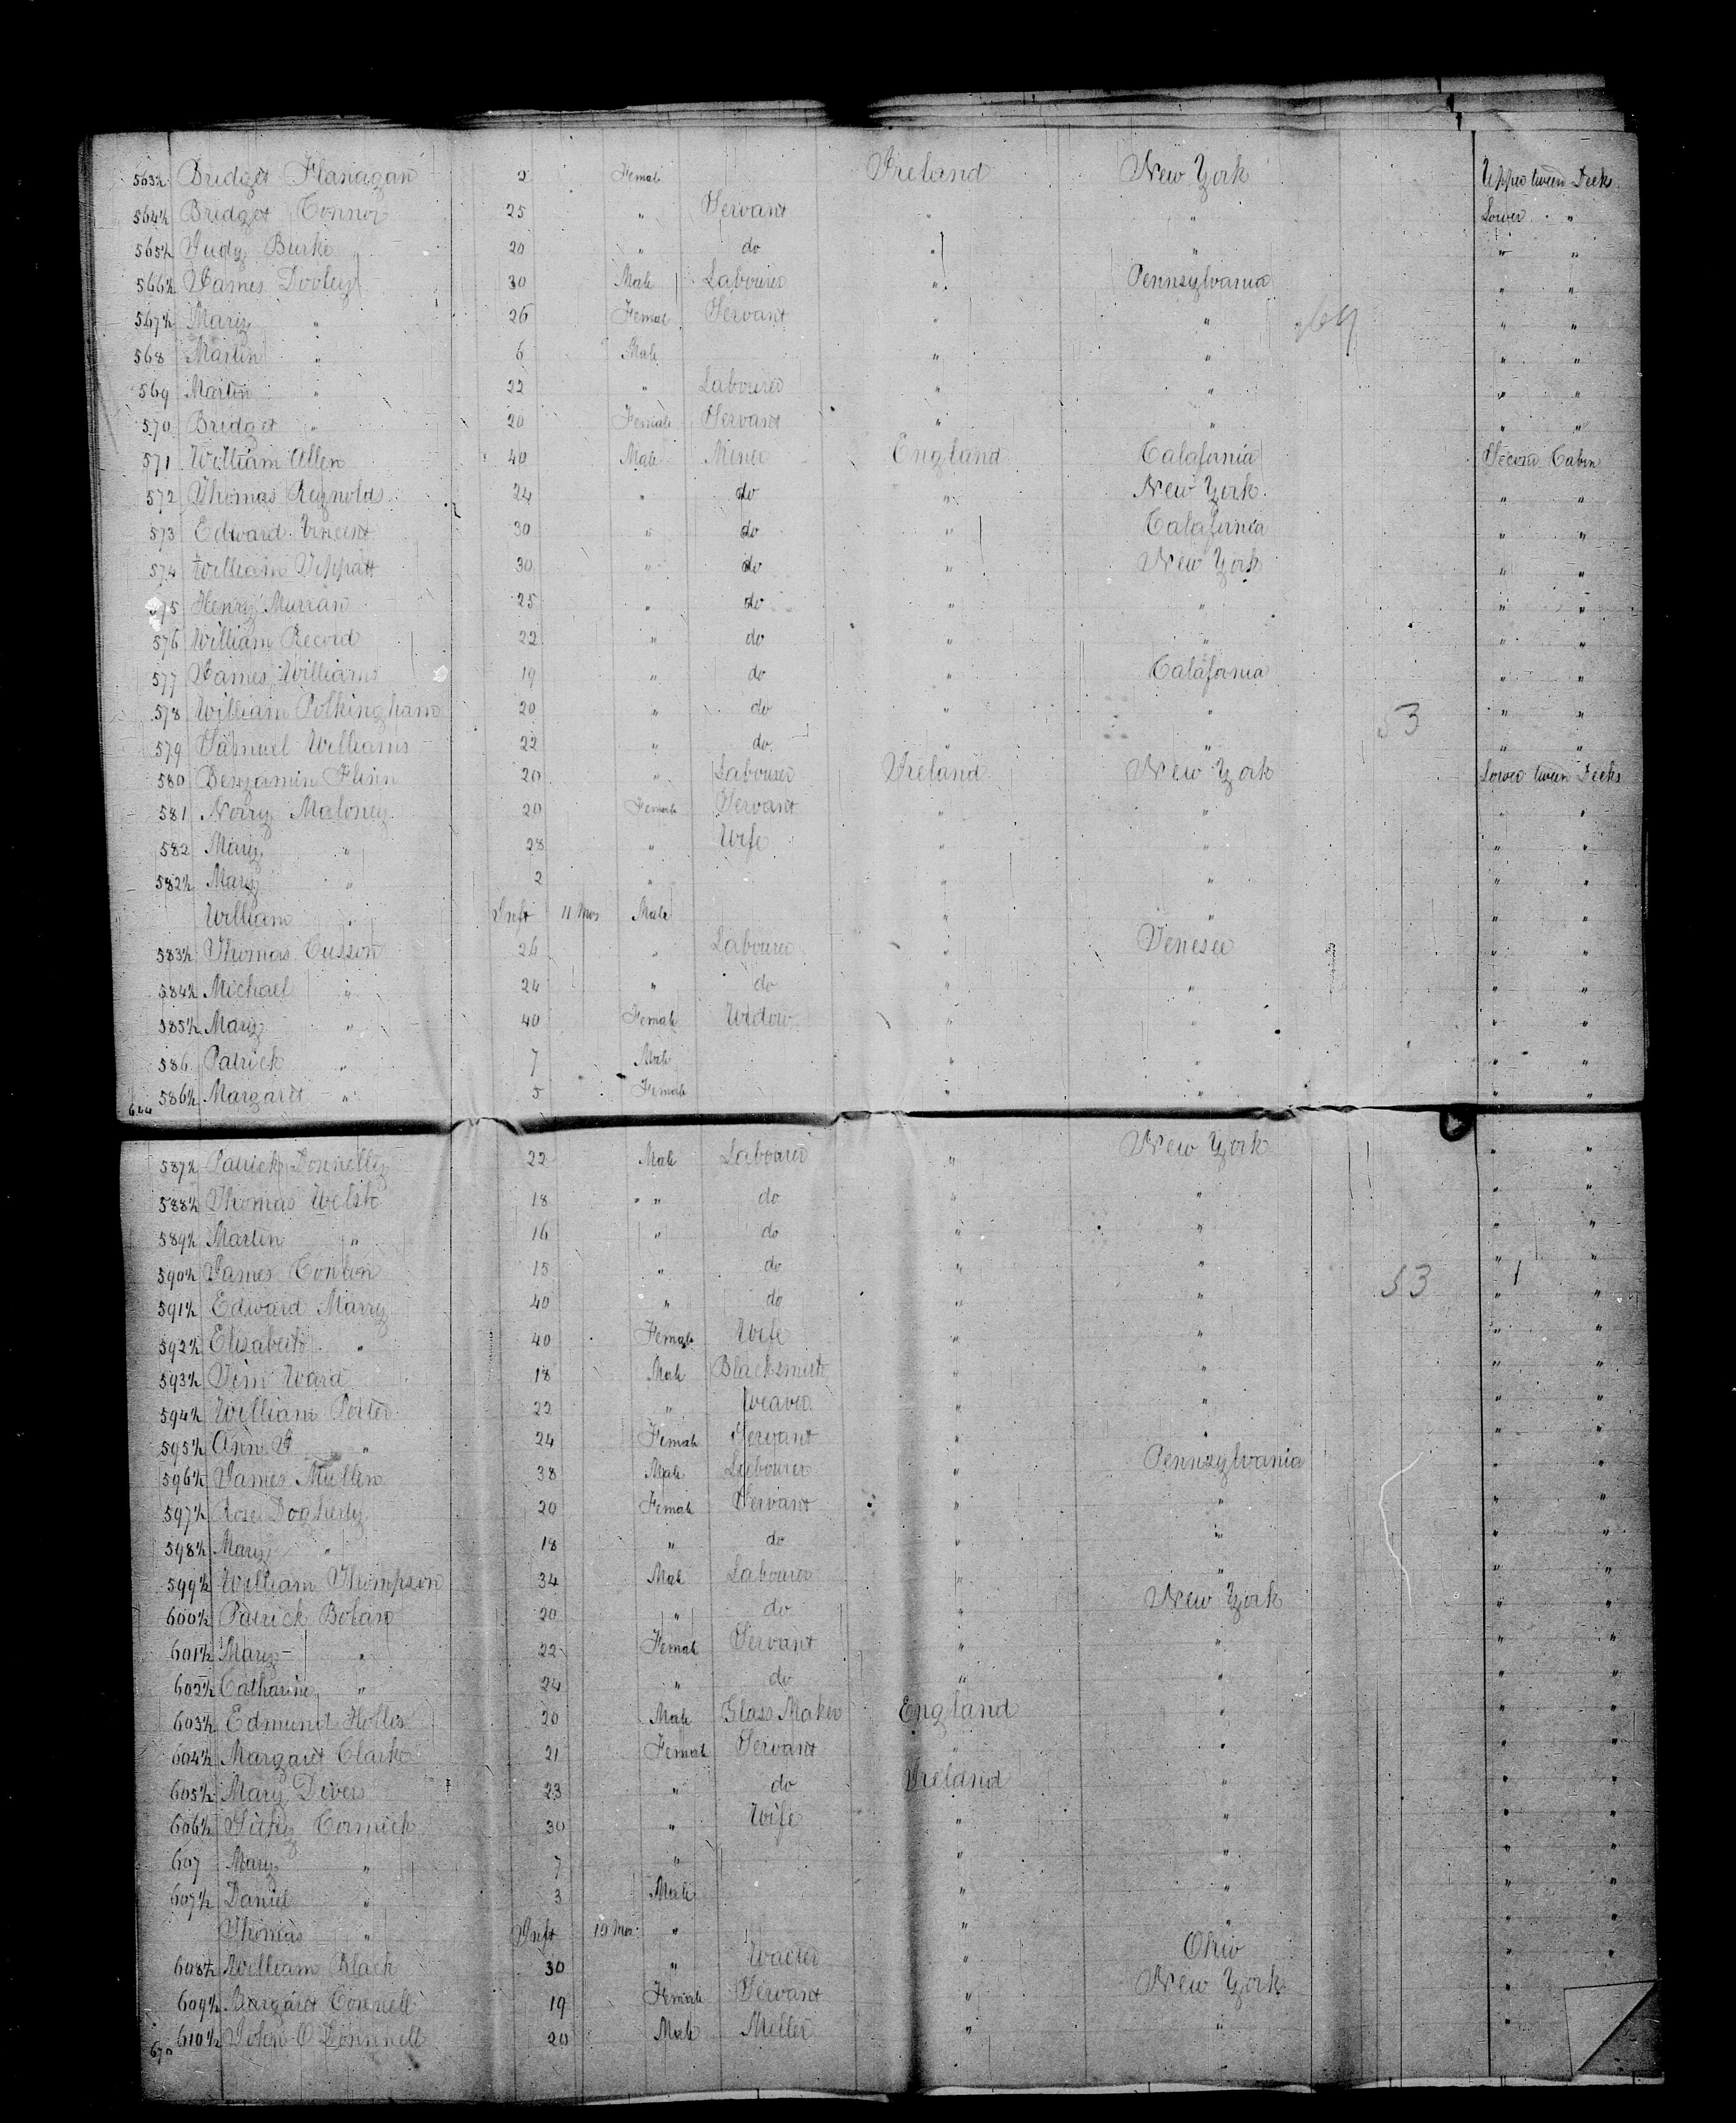 563½ Bridget Flanagan 2 Female Ireland New York Upper tween Decks
564½ Bridget Connor 25 " Servant " " Lower "
565½ Judy Burke 20 " do " " " "
566½ James Dooley 30 Male Labourer " Pennsylvania " "
567½ Mary " 26 Female Servant " " " "
568 Martin " 6 Male " " " "
569 Martin " 22 " Labourer " " " "
570 Bridget " 20 Female Servant " " " "
571 William Allen 40 Male Miner England Calafornia Second Cabin
572 Thomas Reynolds 24 " do " New York " "
573 Edward Vincent 30 " do " Calafornia " "
574 William 30 " do " New York " "
575 Henry Murran 25 " do " " " "
576 William Record 22 " do " " " "
577 James Williams 19 " do " Calafornia " "
578 William Polkingham 20 " do " " 53 " "
579 Samuel Williams 22 " do " " " "
580 Benjamin Flinn 20 " Labourer Ireland New York Lower tween Decks
581 Nory Maloney 20 Female Servant " " " "
582 Mary " 28 " Wife " " " "
582½ Mary " 2 " " " " "
William " Inft 11 Mos Male " " " "
583½ Thomas Cusson 26 " Labourer " Tenesee " "
584½ Michael " 24 " do " " " "
585½ Mary " 40 Female Widow " " " "
586 Patrick " 7 Male " " " "
586½ Margaret " 5 Female " " " "
644
587½ Patrick Donnelly 22 Male Labourer " New York " "
588½ Thomas Welsh 18 " do " " " "
589½ Martin " 16 " do " " " "
590½ James Conlon 15 " do " " " "
591½ Edward Marry 40 " do " " 53 " "
592½ Elisabeth " 40 Female Wife " " " "
593½ Tim Ward 18 Male Blacksmith " " " "
594½ William Porter 22 " Weaver " " " "
595½ Ann J " 24 Female Servant " " " "
596½ James Mullin 38 Male Labourer " Pennsylvania " "
597½ Rose Dogherty 20 Female Servant " " " "
598½ Mary " 18 " do " " " "
599½ William Thompson 34 Male Labourer " " " "
600½ Patrick Bolan 20 " do " New York " "
601½ Mary " 22 Female Servant " " " "
602½ Catharine " 24 " do " " " "
603½ Edmund Hollis 20 Male Glass Maker England " " "
604½ Margaret Clarke 21 Female Servant " " " "
605½ Mary Divers 23 " do Ireland " " "
606½ Cormick 30 " Wife " " " "
607 Mary " 7 " " " " "
607½ Daniel " 3 Male " " " "
Thomas " Inft 10 Mos " " " " "
608½ William Black 30 " Waiter " Ohio " "
609½ Margaret Connell 19 Female Servant " New York "
610½ John O Donnell 20 Male Miller " " "
670